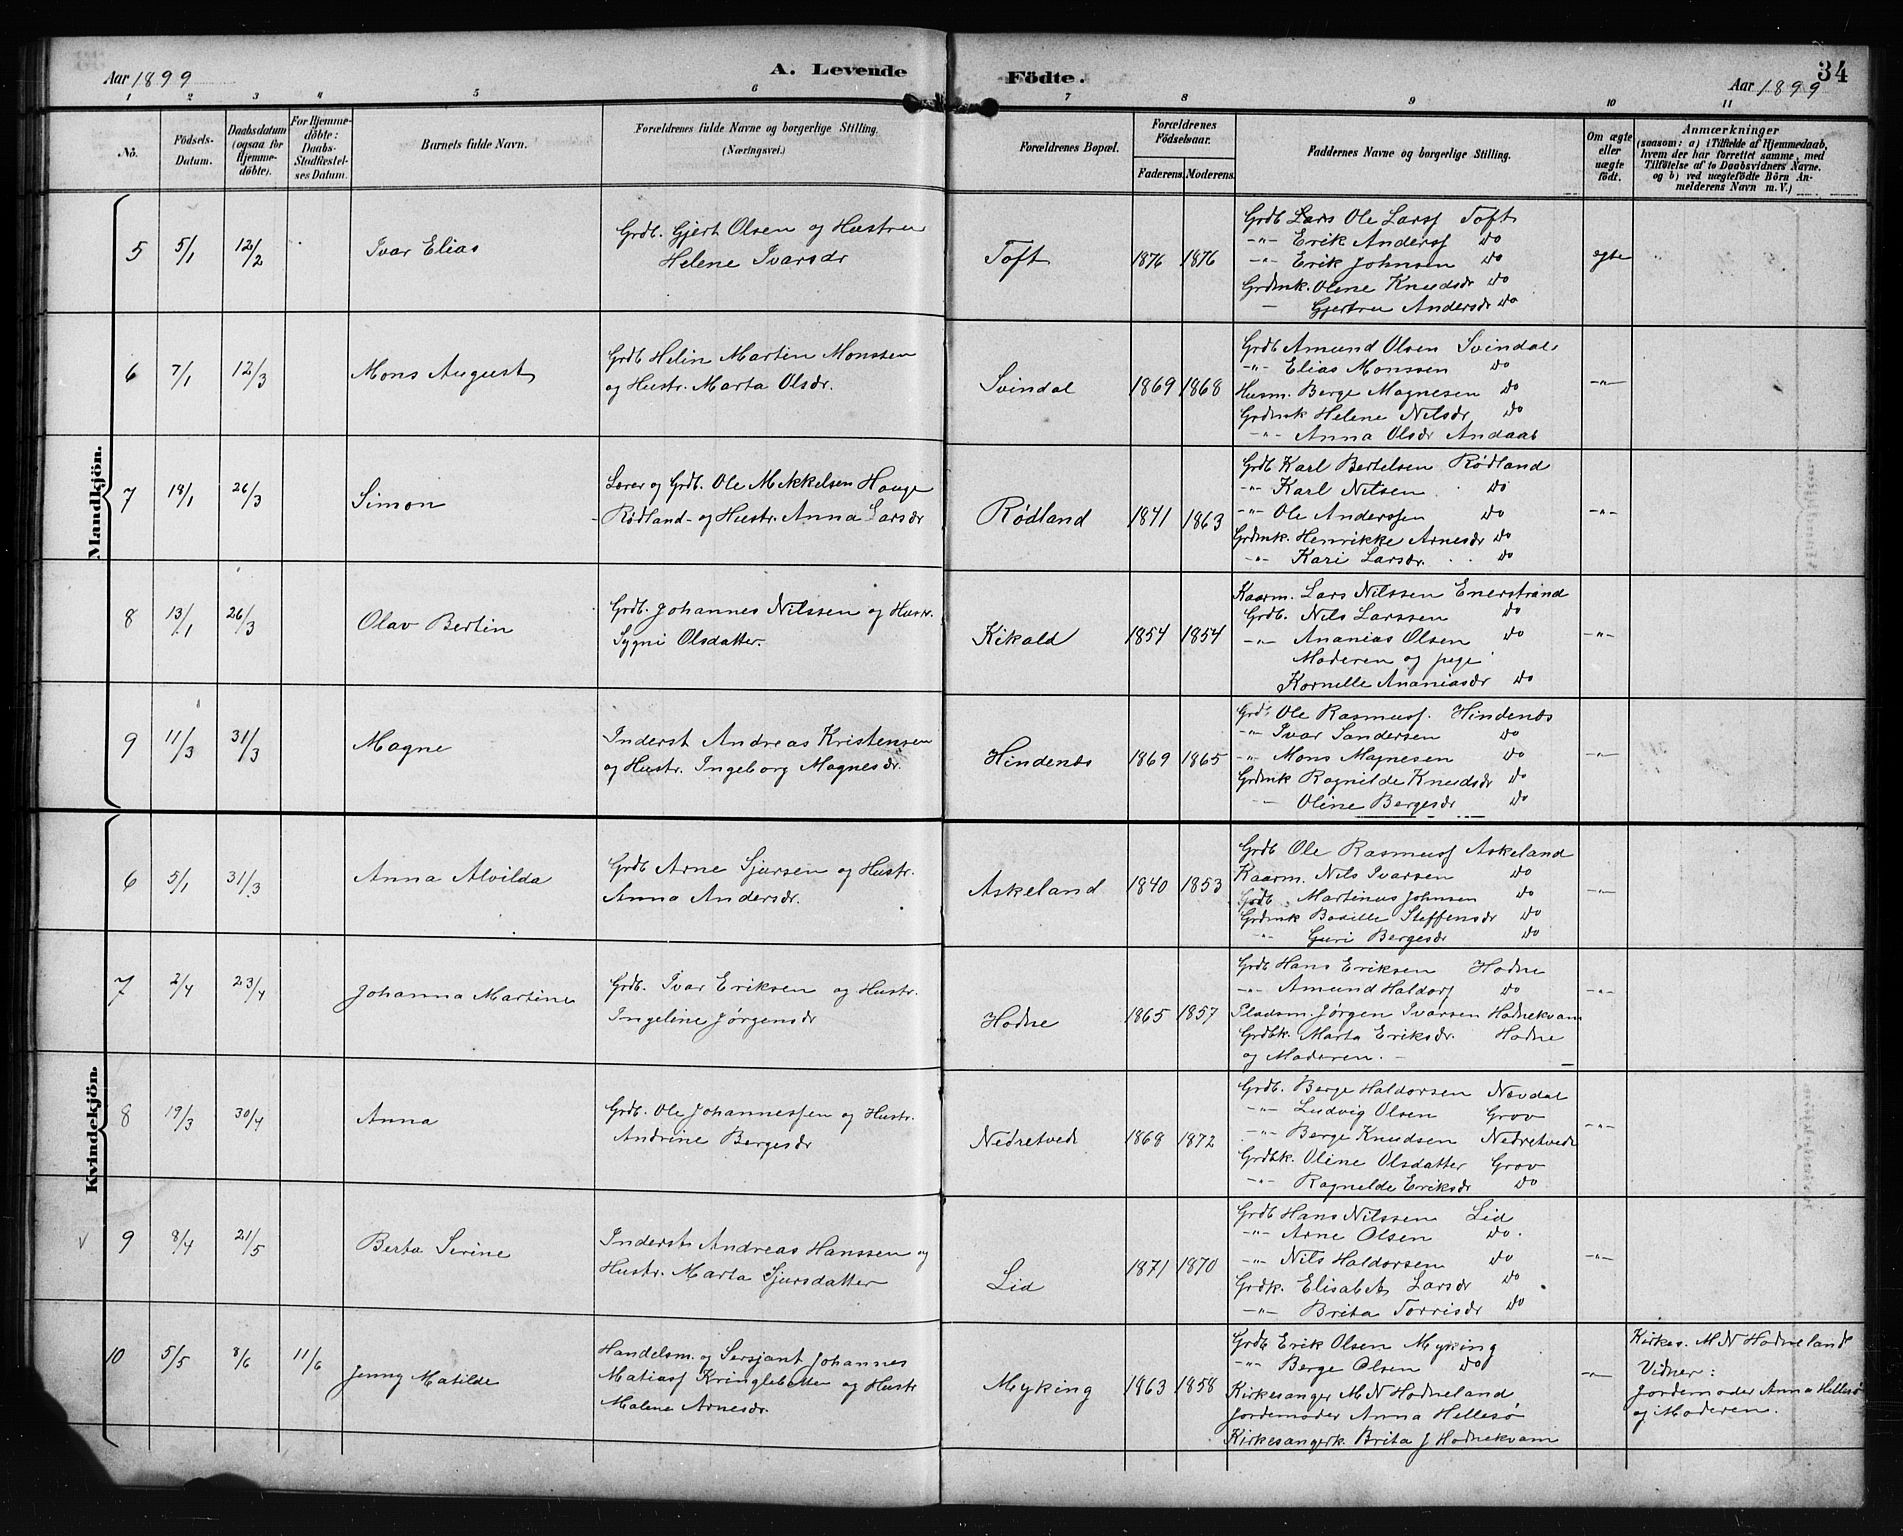 Aar 1899
A. Levende
Födte.
34
Aar 1899
1 2 3 4 5 6 7 8 9 10 11
No.
Födsels-
Datum.
Daabsdatum
(ogsaa for
Hjemme-
döbte).
For Hjemme-
döbte:
Daabs-
Stadfæstel-
ses Datum.
Barnets fulde Navn.
Forældrenes fulde Navne og borgerlige Stilling.
(Næringsvei.)
Forældrenes Bopæl.
Forældrenes
Födselsaar.
Faderens. Moderens.
Faddernes Navne og borgerlige Stilling.
Om ægte
eller
uægte
födt.
Anmærkninger
(saasom: a) i Tilfælde af Hjemmedaab,
hvem der har forrettet samme, med
Tilföielse af to Daabsvidners Navne.
og b) ved uægtefödte Börn An-
melderens Navn m. V.)
Mandkjön.
5 5/1 12/2 Ivar Elias
Grdb. Gjert Olsen og Hustru
Helene Ivarsdr
Toft 1876 1876
Grdb Lars Ole Larss Toft
-"- Erik Anderss Do
-"- Erik Johnsen Do
Grdmk. Oline Knudsdr Do
— Gjertru Andersdr Do
egte
6 7/1 12/3 Mons August
Grdb Helin Martin Monssen
og Hustr. Marta Olsdr.
Svindal 1869 1868
Grdb Amund Olsen Svindal
-"- Elias Monssen Do
Husm. Berge Magnesen Do
Grdmk Helene Nilsdr Do
-"- Anna Olsdr Andaas
-"-
7 18/1 26/3 Simon
Lærer og Grdb. Ole Mikkelsen Hauge
Rødland og Hustr. Anna Larsdr
Rødland 1841 1863
Grdb Karl Bertelsen Rødland
-"- Karl Nilsen Do
-"- Ole Anderssen Do
Grdmk. Henrikke Arnesdr Do
-"- Kari Larsdr. Do
-"-
8 13/1 26/3 Olav Bertin
Grdb. Johannes Nilssen og Hustr.
Sygni Olsdatter.
Kikald 1854 1854
Kaarm. Lars Nilssen Enerstrand
Grdb. Nils Larssen Do
-"- Ananias Olsen Do
Moderen og pige
Kornelle Ananiasdr Do
-"-
9 11/3 31/3 Magne
Inderst Andreas Kristensen
og Hustr. Ingeborg Magnesdr.
Hindenes 1869 1865
Grdb Ole Rasmuss. Hindenes
-"- Ivar Sandersen Do
-"- Mons Magnesen Do
Grdmk Ragnilde Knudsdr Do
-"- Oline Bergesdr Do
-"-
Kvindekjön.
6 5/1 31/3 Anna Alvilda
Grdb Arne Sjursen og Hustr.
Anna Andersdr.
Askeland 1840 1853
Grdb Ole Rasmuss Askeland
Kaarm. Nils Ivarsen Do
Grdb Martinus Johnsen Do
Grdmk Bosille Steffensdr Do
-"- Guri Bergesdr Do
-"-
7 2/4 23/4 Johanna Martine
Grdb. Ivar Eriksen og Hustr.
Ingeline Jørgensdr
Hodne 1865 1857
Grdb Hans Eriksen Hodne
-"- Amund Haldors Do
Pladsm. Jørgen Ivarsen Hodnekvam
Grdbk. Marta Eriksdr. Hodne
og Moderen.
-"-
8 19/3 30/4 Anna
Grdb. Ole Johannessen og Hustr.
Andrine Bergesdr
Nedretvedt 1868 1872
Grdb. Berge Haldorsen Nævdal
-"- Ludvig Olsen Grov
-"- Berge Knudsen Nedretvedt
Grdbk. Oline Olsdatter Grov
-"- Ragnilde Eriksdr Do
-"-
9 8/4 21/5 Berta Serine
Inderst Andreas Hanssen og
Hustr. Marta Sjursdatter
Lid 1871 1870
Grdb Hans Nilssen Lid
-"- Arne Olsen Do.
-"- Nils Haldorsen Do
Grdk. Elisabet Larsdr Do
-"- Brita Torrisdr Do
-"-
10 5/5 8/6 11/6 Jenny Matilde
Handelsm. og Sersjant Johannes
Matiass Kringlebotten og Hustr
Malene Arnesdr.
Myking 1863 1858
Grdb Erik Olsen Myking
-"- Berge Olsen Do
Kirkesanger M N Hodneland
Jordemoder Anna Hellesø
Kirkesangerk. Brita J Hodnekvam
-"-
Kirkes. M N Hodneland
Vidner:
Jordemoder Anna Hellesø
og Moderen.